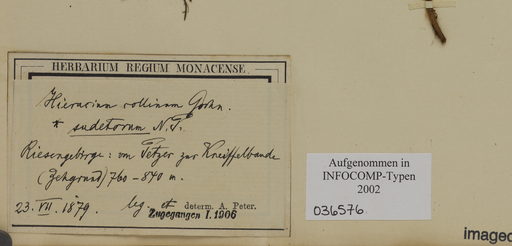 HERBARIUM REGIUM MONACENSE.
Hieracium collinum Gochn.
* sudetorum N. P.
Riesengebirge: von Petzer zur Kreiffelbaude
(Zehgrund) 760 - 840 m.
23. VII. 1879. leg. et determ. A. Peter.
Zugegangen I. 1906
Aufgenommen in
INFOCOMP-Typen
2002
036576
imaged